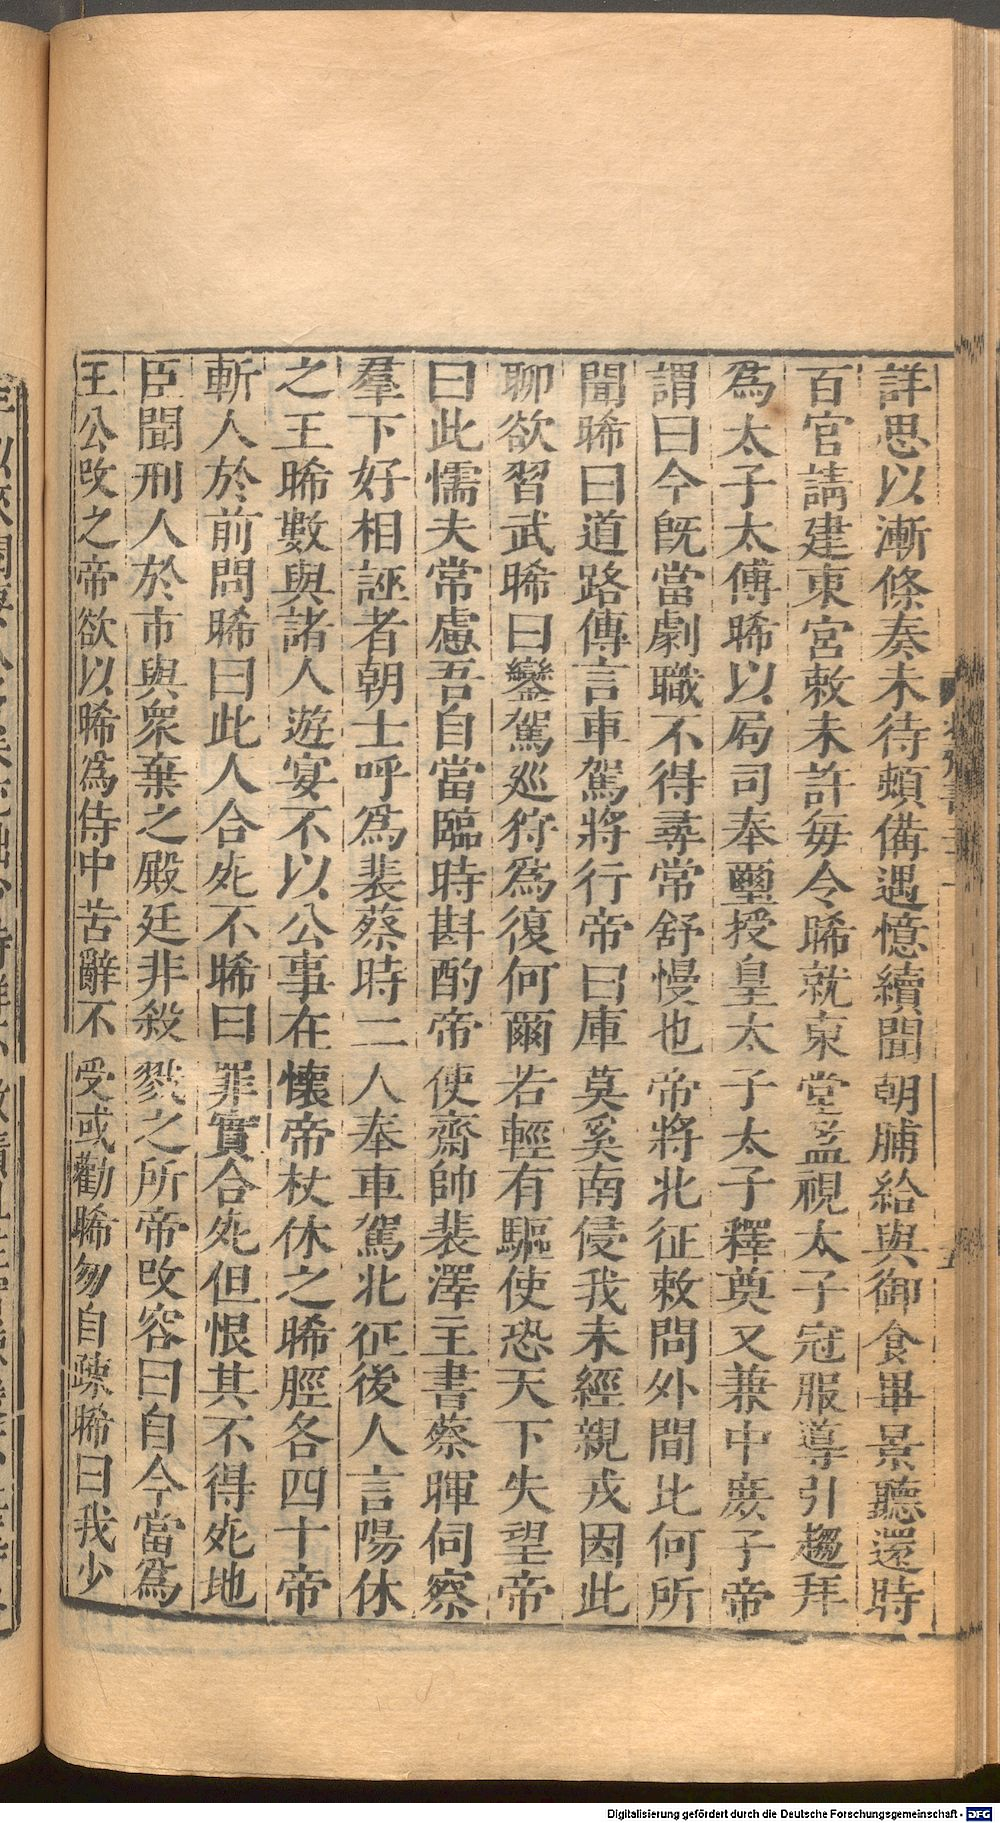 詳思以漸條奏未待頓備遇憶續聞朝脯給與御食畢景聽還時
百官請建東宮敕未許每令晞就東堂監視太子冠服導引趨拜
為太子太傅晞以局司奉璽授皇太子太子釋奠又兼中庶子帝
謂曰今既當劇職不得尋常舒慢也帝將北征敕問外間比何所
聞晞曰道路傳言車駕將行帝曰庫莫奚南侵我未經親戎因此
聊欲習武晞曰鑾駕巡狩為復何爾若輕有驅使恐天下失望帝
曰此懦夫常慮吾自當臨時斟酌帝使齋帥裴澤主書蔡暉伺察
羣下好相誣者朝士呼為裴蔡時二人奉車駕北征後人言陽休
之王晞數與諸人遊宴不以公事在懷帝杖休之晞脛各四十帝
斬人於前問晞曰此人合死不晞曰罪實合死但恨其不得死地
臣聞刑人於市與衆棄之殿廷非殺戮之所帝改容曰自今當為
王公改之帝欲以晞為侍中苦辭不受或勸晞勿自疎晞曰我少
五
Digitalisierung gefördert durch die Deutsche Forschungsgemeinschaft - DFG